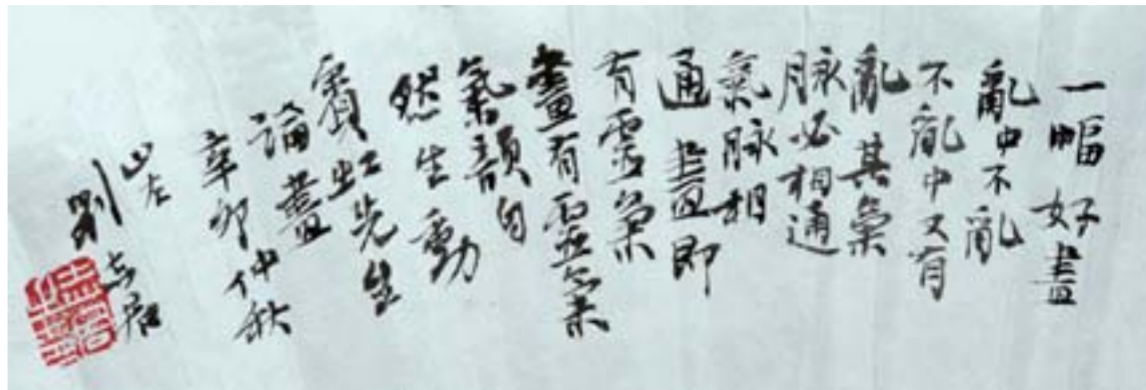 一幅好畫
亂中不亂
不亂中又有
亂其氣
脉必相通
氣脉相
通畫即
有靈氣
畫有靈氣
氣韻自
然生動
賓虹先生
論畫
辛卯仲秋
山左
劉